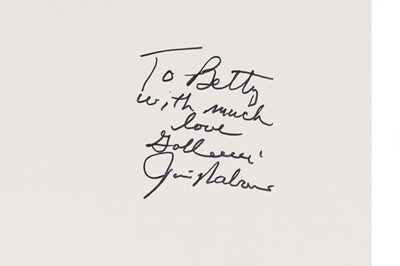 To Betty
with much
love
Golleeee!
Jim Nabors